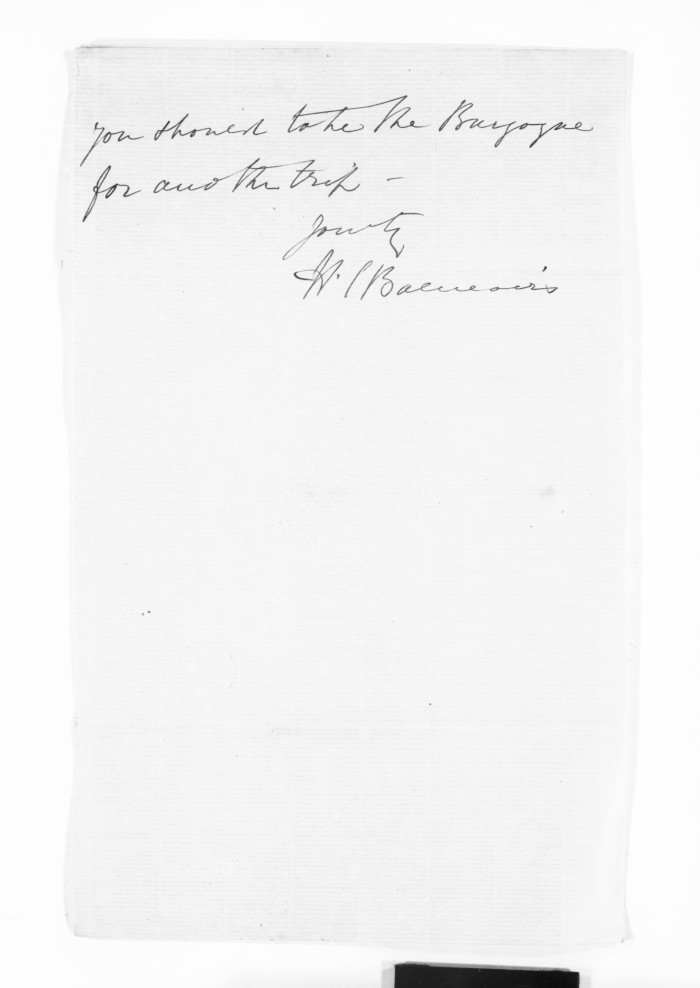 you should take the Burgogne
for another trip -
Yours ty
H. S Balneavis